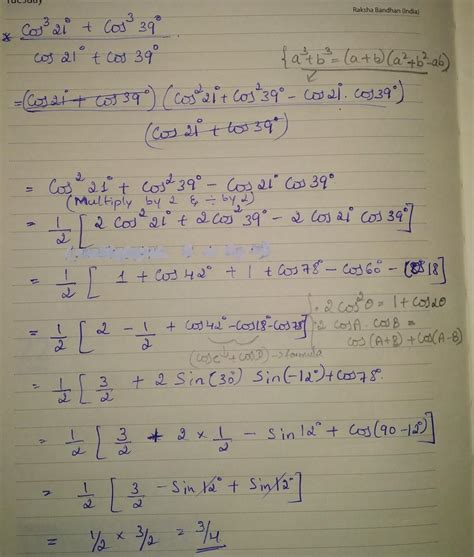 Tuesday
Raksha Bandhan (India)
* cos³21° + cos³39°
cos 21° + cos 39°
{a³+b³ = (a+b)(a²+b²-ab)
= (cos 21° + cos 39°) (cos²21° + cos²39° - cos 21°. cos 39°)
(cos 21° + cos 39°)
= cos²21° + cos²39° - cos 21° cos 39°
(Multiply by 2 & ÷ by 2)
= 1/2 [2 cos²21° + 2 cos²39° - 2 cos 21° cos 39°]
= 1/2 [1 + cos 42° + 1 + cos 78° - cos 60° - cos 18]
= 1/2 [2 - 1/2 + cos 42° - cos 18° - cos 78°]
∵ 2 cos²θ = 1 + cos 2θ
∵ 2 cos A. cos B = cos(A+B) + cos(A-B)
→ formula
= 1/2 [3/2 + 2 Sin(30°) Sin(-12°) + cos 78°
= 1/2 [3/2 + 2 × 1/2 - Sin 12° + cos(90-12°)]
= 1/2 [3/2 - Sin 12° + Sin 12°]
= 1/2 × 3/2 = 3/4